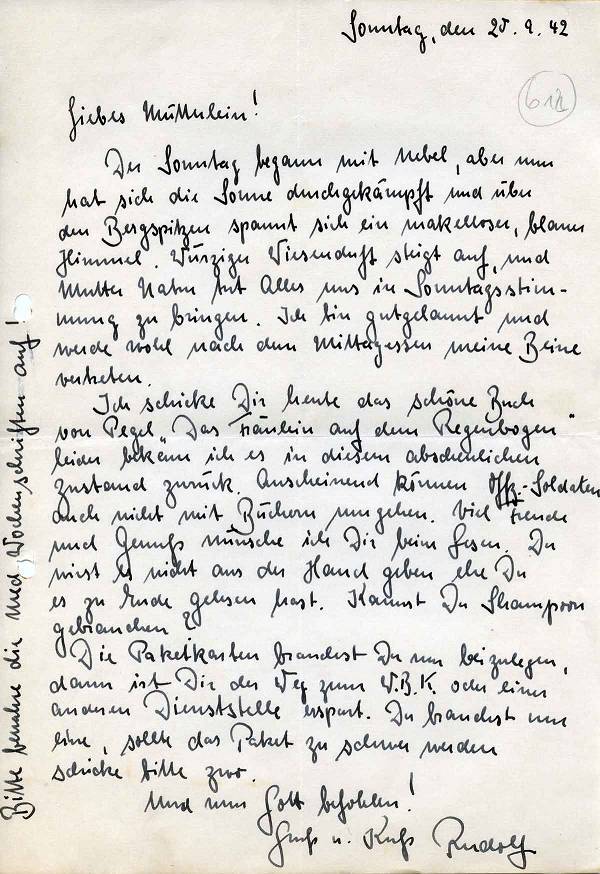 Sonntag, den 20. 9. 42
612
Liebes Mütterlein!
Der Sonntag begann mit Nebel, aber nun
hat sich die Sonne durchgekämpft und über
den Bergspitzen spannt sich ein makelloser, blauer
Himmel. Würziger Wiesenduft steigt auf, und
Mutter Natur tut Alles uns in Sonntagsstim-
mung zu bringen. Ich bin gutgelaunt und
werde wohl nach dem Mittagessen meine Beine
vertreten.
Ich schicke Dir heute das schöne Buch
von Pegel „Das Fräulein auf dem Regenbogen“
leider bekam ich es in diesem abscheulichen
Zustand zurück. Anscheinend können Offz.-Soldaten
auch nicht mit Büchern umgehen. Viel Freude
und Genuß wünsche ich Dir beim Lesen. Du
wirst es nicht aus der Hand geben ehe Du
es zu Ende gelesen hast. Kannst Du Shampoon
gebrauchen?
Die Paketkarten brauchst Du nur beizulegen,
dann ist Dir der Weg zum W.B.K. oder einer
anderen Dienststelle erspart. Du brauchst nur
eine, sollte das Paket zu schwer werden
schicke bitte zwo.
Und nun Gott befohlen!
Gruß u. Kuß Rudolf
Bitte bewahre die Med. Wochenschriften auf!